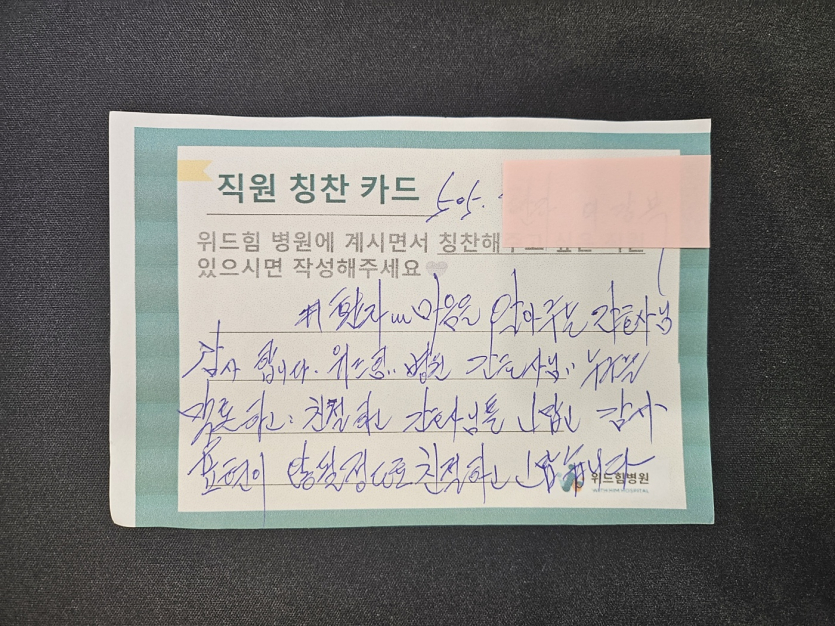 직원 칭찬 카드 505.
위드힘 병원에 계시면서 칭찬해주고 싶은 직원
있으시면 작성해주세요
# 환자 마음을 알아주는 간호사님
감사 합니다. 위드힘 병원 간호사님
하고 친절하고 간호사님들 감사
표현이 정도로 친절하고
위드힘병원